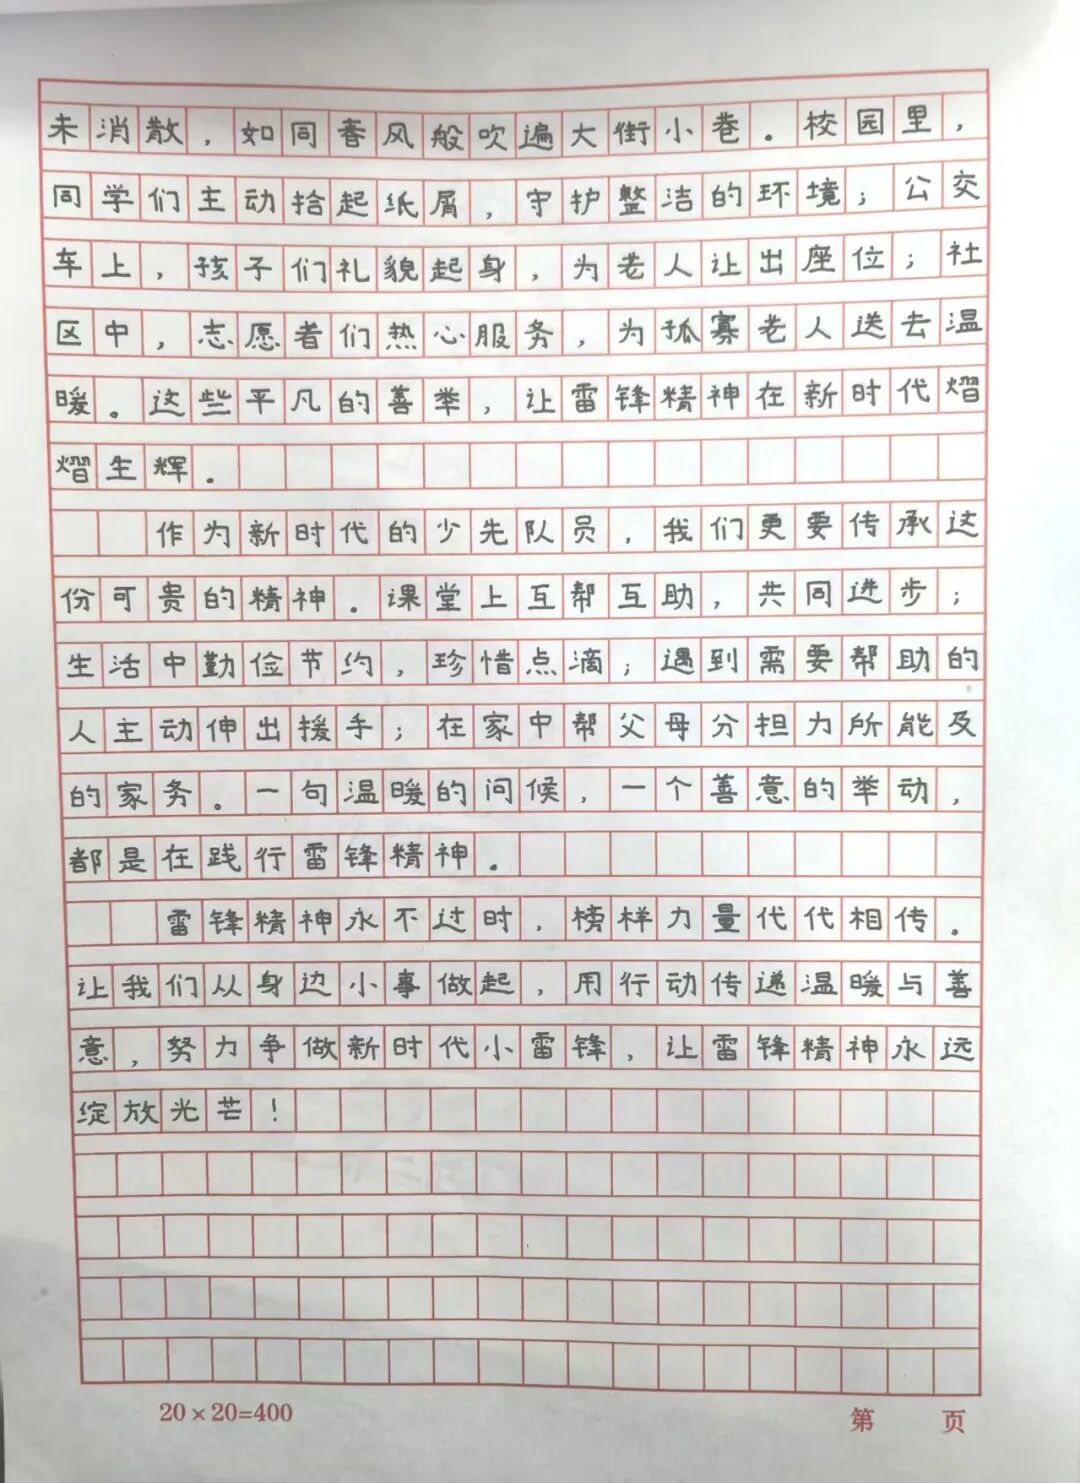 未消散，如同春风般吹遍大街小巷。校园里，
同学们主动拾起纸屑，守护整洁的环境；公交
车上，孩子们礼貌起身，为老人让出座位；社
区中，志愿者们热心服务，为孤寡老人送去温
暖。这些平凡的善举，让雷锋精神在新时代熠
熠生辉。
作为新时代的少先队员，我们更要传承这
份可贵的精神。课堂上互帮互助，共同进步；
生活中勤俭节约，珍惜点滴；遇到需要帮助的
人主动伸出援手；在家中帮父母分担力所能及
的家务。一句温暖的问候，一个善意的举动，
都是在践行雷锋精神。
雷锋精神永不过时，榜样力量代代相传。
让我们从身边小事做起，用行动传递温暖与善
意，努力争做新时代小雷锋，让雷锋精神永远
绽放光芒！
20×20=400
第 页